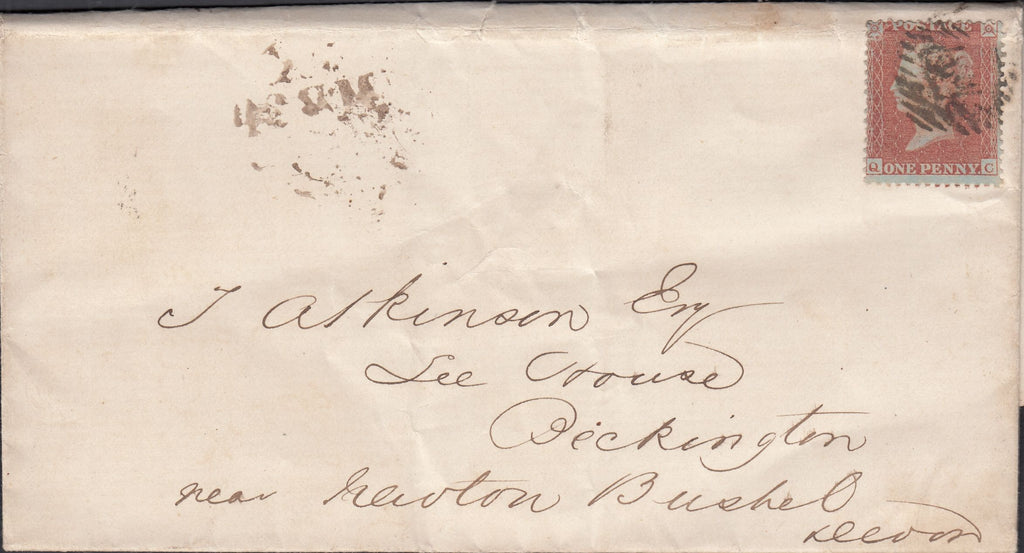 POSTAGE
Q ONE PENNY. C
J Atkinson Esq
Lee House
Bickington
near Newton Bushel
Devon